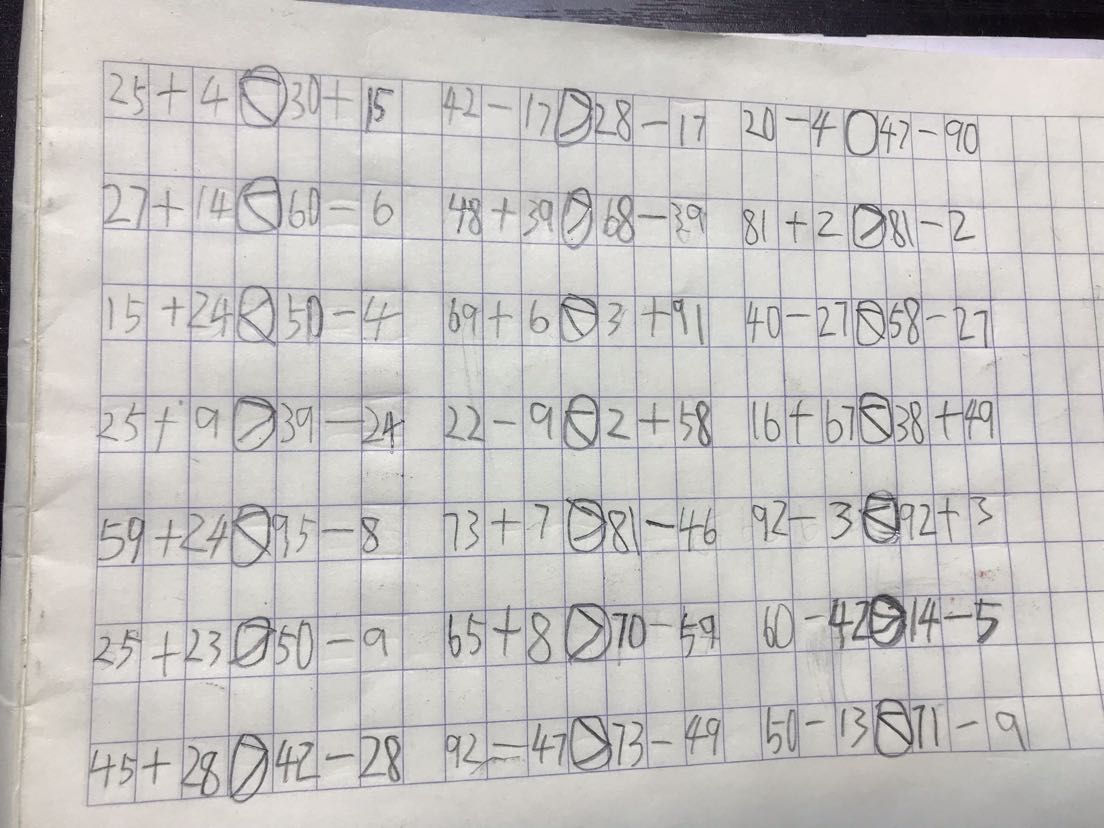 25+4<30+15 42-17>28-17 20-4○47-90
27+14<60=6 48+39>68-39 81+2>81-2
15+24<50-4 69+6<3+91 40-27<58-27
25+9>39-24 22-9<2+58 16+67<38+49
59+24<95-8 73+7>81-46 92-3<92+3
25+23>50-9 65+8>70-59 60-42>14-5
45+28>42-28 92=47>73-49 50-13<71-9